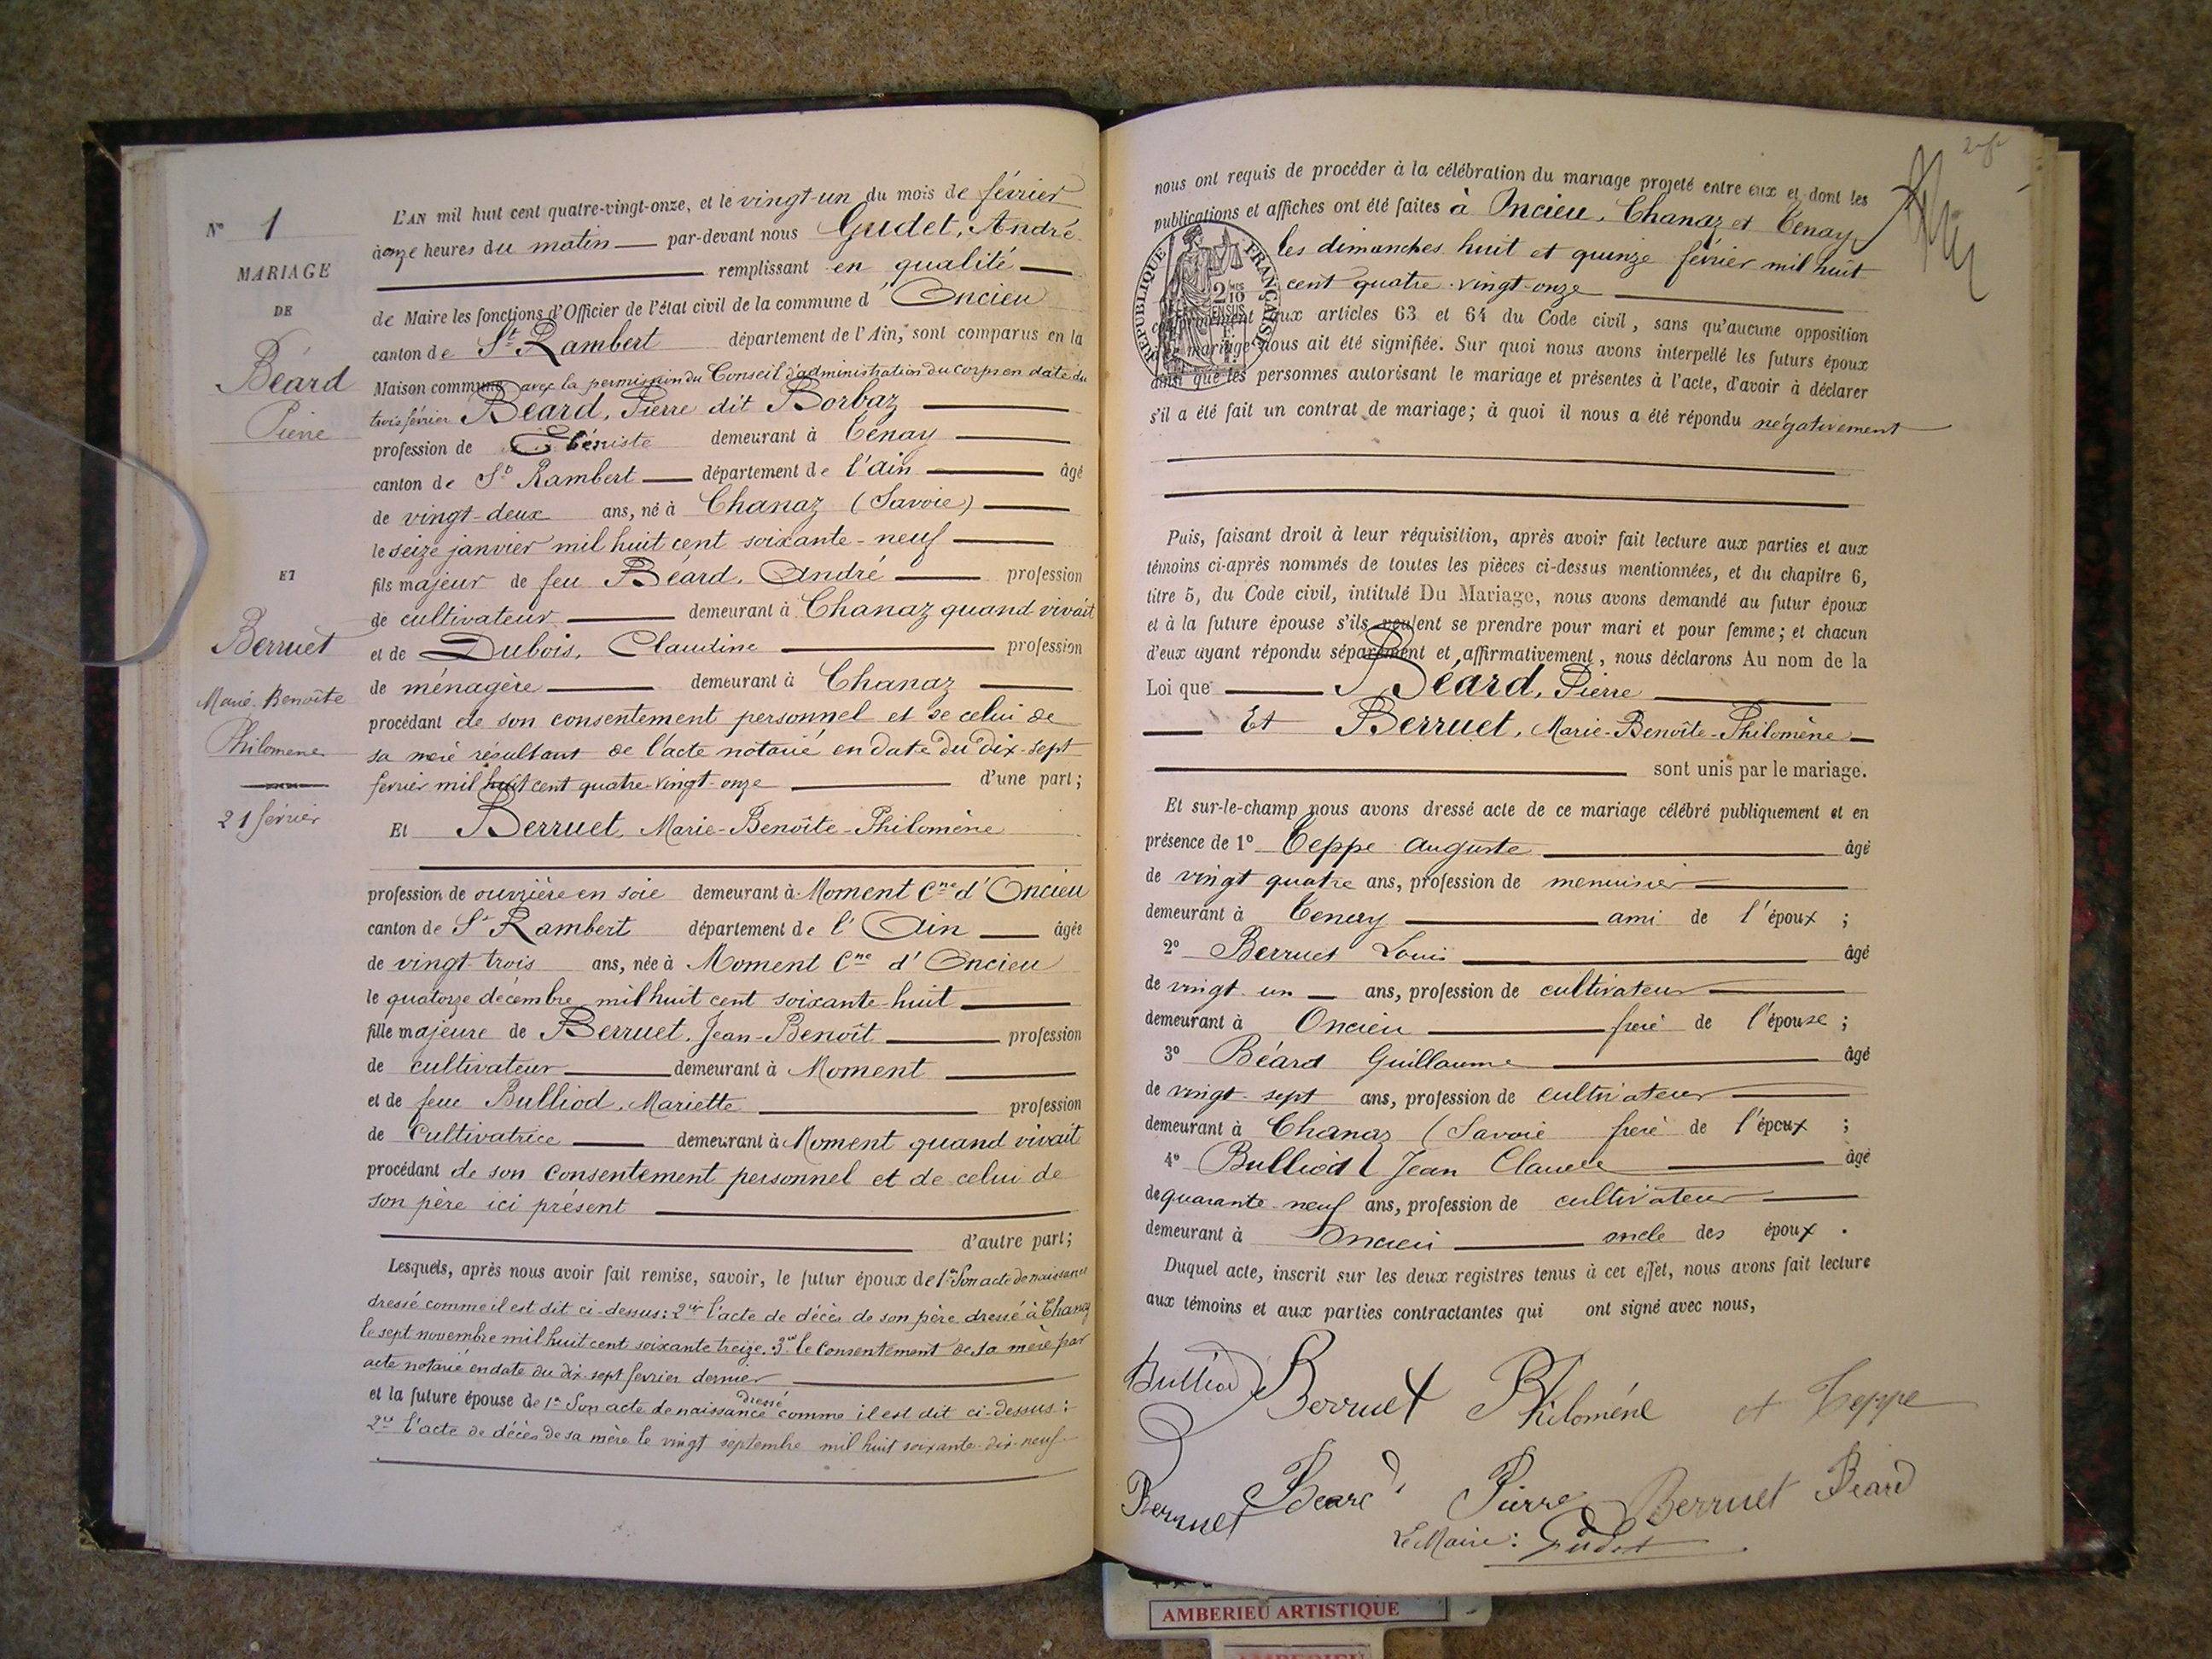 N° 1
MARIAGE
DE
Béard
Pierre
ET
Berruet
Marie-Benoîte
Philomène
21 février
L'AN mil huit cent quatre-vingt-onze, et le vingt-un du mois de février
à onze heures du matin par-devant nous Gudet, André
remplissant en qualité
de Maire les fonctions d'Officier de l'état civil de la commune d'Oncieu
canton de St Rambert département de l'Ain, sont comparus en la
Maison commune avec la permission du Conseil d'administration du corps en date du
trois février Béard, Pierre dit Borbaz
profession de Ébéniste demeurant à Tenay
canton de St Rambert département de l'ain âgé
de vingt-deux ans, né à Chanaz (Savoie)
le seize janvier mil huit cent soixante-neuf
fils majeur de feu Béard, André profession
de cultivateur demeurant à Chanaz quand vivait
et de Dubois, Claudine profession
de ménagère demeurant à Chanaz
procédant de son consentement personnel et de celui de
sa mère résultant de l'acte notarié en date du dix-sept
février mil huit cent quatre-vingt-onze d'une part;
Et Berruet, Marie-Benoîte-Philomène
profession de ouvrière en soie demeurant à Moment Cne d'Oncieu
canton de St Rambert département de l'Ain âgée
de vingt-trois ans, née à Moment Cne d'Oncieu
le quatorze décembre mil huit cent soixante-huit
fille majeure de Berruet, Jean-Benoît profession
de cultivateur demeurant à Moment
et de feue Bulliod, Mariette profession
de Cultivatrice demeurant à Moment quand vivait
procédant de son consentement personnel et de celui de
son père ici présent
d'autre part;
Lesquels, après nous avoir fait remise, savoir, le futur époux de 1° Son acte de naissance
dressé comme il est dit ci-dessus: 2° l'acte de décès de son père dressé à Chanaz
le sept novembre mil huit cent soixante treize. 3° le Consentement de sa mère par
acte notarié en date du dix-sept février dernier
et la future épouse de 1° Son acte de naissance dressé comme il est dit ci-dessus:
2° l'acte de décès de sa mère le vingt septembre mil huit soixante-dix-neuf
nous ont requis de procéder à la célébration du mariage projeté entre eux et dont les
publications et affiches ont été faites à Oncieu, Chanaz et Tenay
les dimanches huit et quinze février mil huit
cent quatre-vingt-onze
RÉPUBLIQUE FRANÇAISE
2 10
EN SUS
conformément aux articles 63 et 64 du Code civil, sans qu'aucune opposition
mariage nous ait été signifiée. Sur quoi nous avons interpellé les futurs époux
ainsi que les personnes autorisant le mariage et présentes à l'acte, d'avoir à déclarer
s'il a été fait un contrat de mariage; à quoi il nous a été répondu négativement
Puis, faisant droit à leur réquisition, après avoir fait lecture aux parties et aux
témoins ci-après nommés de toutes les pièces ci-dessus mentionnées, et du chapitre 6,
titre 5, du Code civil, intitulé Du Mariage, nous avons demandé au futur époux
et à la future épouse s'ils veulent se prendre pour mari et pour femme; et chacun
d'eux ayant répondu séparément et affirmativement, nous déclarons Au nom de la
Loi que Béard, Pierre
Et Berruet, Marie-Benoîte-Philomène
sont unis par le mariage.
Et sur-le-champ nous avons dressé acte de ce mariage célébré publiquement et en
présence de 1° Teppe Auguste âgé
de vingt quatre ans, profession de menuisier
demeurant à Tenay ami de l'époux ;
2° Berruet Louis âgé
de vingt-un ans, profession de cultivateur
demeurant à Oncieu frère de l'épouse ;
3° Béard Guillaume âgé
de vingt-sept ans, profession de cultivateur
demeurant à Chanaz (Savoie frère de l'époux ;
4° Bulliod Jean Claude âgé
de quarante-neuf ans, profession de cultivateur
demeurant à Oncieu oncle des époux .
Duquel acte, inscrit sur les deux registres tenus à cet effet, nous avons fait lecture
aux témoins et aux parties contractantes qui ont signé avec nous,
Bulliod Berruet Philoméne et Teppe
Berruet Beard Pierre Berruet Béard
Le Maire: Gudet
AMBERIEU ARTISTIQUE
AMBERIEU